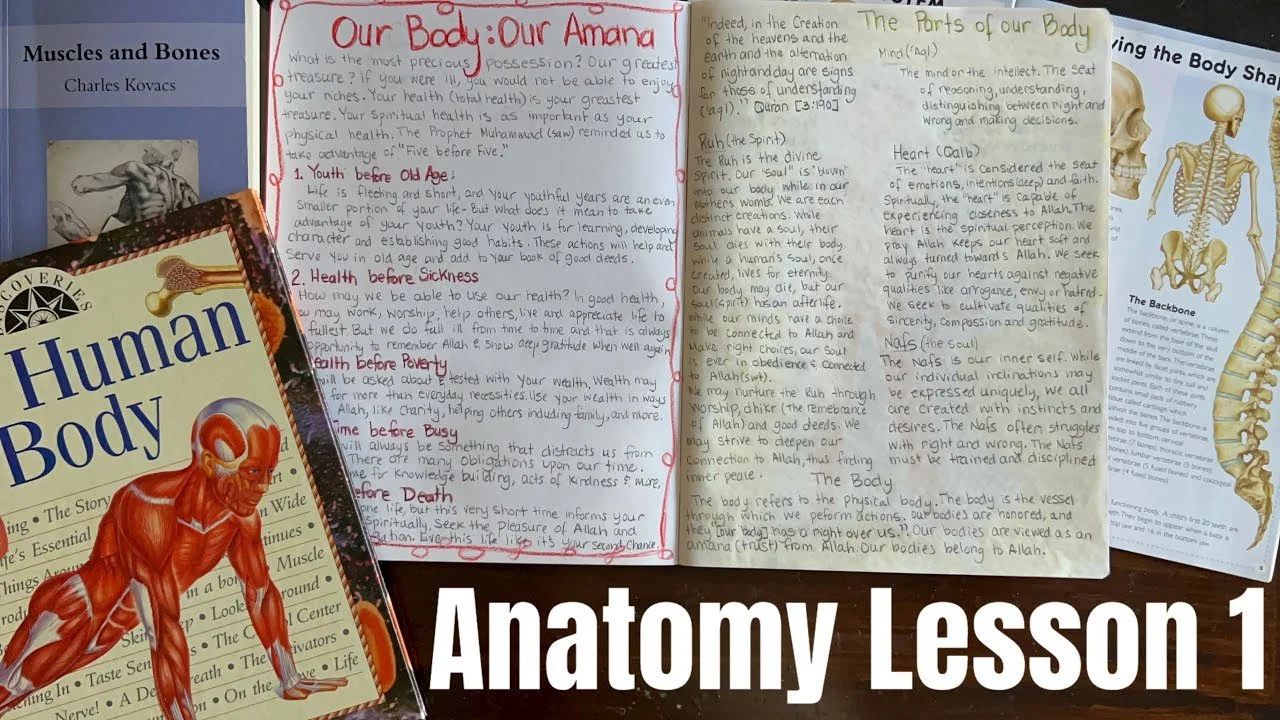 Muscles and Bones
Charles Kovacs
DISCOVERIES
Human
Body
The Story
Life's Essential
Things Around
in a bone • Muscle
Skin • Look Around •
• Taste Sensations • The Control Center
• A Deep Breath • The Activators •
• On the Move • Life
Nerve!
Our Body: Our Amana
What is the most precious possession? Our greatest
treasure? If you were ill, you would not be able to enjoy
your riches. Your health (total health) is your greastest
treasure. Your Spiritual health is as important as your
physical health. The Prophet Muhammad (saw) reminded us to
take advantage of "Five before Five."
1. Youth before Old Age:
Life is fleeting and short, and your youthful years are an even
smaller portion of your life. But what does it mean to take
advantage of your youth? Your youth is for learning, developing
character and establishing good habits. These actions will help and
serve you in old age and add to your book of good deeds.
2. Health before Sickness
How may we be able to use our health? In good health,
you may work, worship, help others, live and appreciate life to
fullest. But we do fall ill from time to time and that is always
opportunity to remember Allah, & show deep gratitude when well again
Wealth before Poverty
will be asked about & tested with your wealth. Wealth may
for more than everyday necessities. Use your wealth in ways
Allah, like charity, helping others including family, and more.
Time before Busy
will always be something that distracts us from
There are many obligations upon our time.
time for knowledge building, acts of kindness & more.
before Death
one life, and this very short time informs your
Spiritual. Seek the pleasure of Allah and
Live this life like it's your Second Chance
"Indeed, in the Creation
of the heavens and the
earth and the alternation
of night and day are signs
for those of understanding
('aql)." Quran [3:190]
Ruh (the Spirit)
The Ruh is the divine
spirit. Our "soul" is "blown"
into our body while in our
mothers womb. We are each
distinct creations. While
animals have a soul, their
soul dies with their body
while a human's soul, once
created, lives for eternity.
Our body may die, but our
soul (spirit) has an afterlife.
While our minds have a choice
to be connected to Allah and
make right choices, our Soul
is ever in obedience & connected
to Allah (swt).
We may nurture the Ruh through
worship, dhikr (the remebrance
of Allah) and good deeds. We
may strive to deepen our
connection to Allah, thus finding
inner peace.
The Parts of our Body
Mind ('Aql)
The mind or the intellect. The seat
of reasoning, understanding,
distinguishing between right and
wrong and making decisions.
Heart (Qalb)
The "heart" is considered the seat
of emotions, intentions (deep) and faith.
Spiritually, the "heart" is capable of
experiencing closeness to Allah. The
heart is the spiritual perception. We
pray Allah keeps our heart soft and
always turned towards Allah. We seek
to purify our hearts against negative
qualities like arrogance, envy or hatred.
We seek to cultivate qualities of
sincerity, compassion and gratitude.
Nafs (the soul)
The Nafs is our inner self. While
our individual inclinations may
be expressed uniquely, we all
are created with instincts and
desires. The Nafs often struggles
with right and wrong. The Nafs
must be trained and disciplined
The Body
The body refers to the physical body. The body is the vessel
through which we peform actions. Our bodies are honored, and
they [our body] has a right over us." Our bodies are viewed as an
amana (trust) from Allah. Our bodies belong to Allah.
ving the Body Sha
The Backbone
The backbone, or spine, is a column
of bones, called vertebrae. These
extend from the base of the skull
down to the very bottom of the
middle of the back. The vertebrae
are linked by facet joints, which are
somewhat similar to tiny ball and
socket joints. Each of these joints
contains small pads of rubbery
tissue called cartilage which
cushion the bones. The backbone is
divided into five groups of vertebrae,
from top to bottom: cervical
vertebrae (7 bones), thoracic vertebrae
bones), lumbar vertebrae (5 bones)
vertebrae (5 fused bones) and coccygeal
(4 fused bones)
functioning body. A child's first 20 teeth are
They begin to appear when a baby is
top jaw and 16 in the bottom jaw.
Anatomy Lesson 1